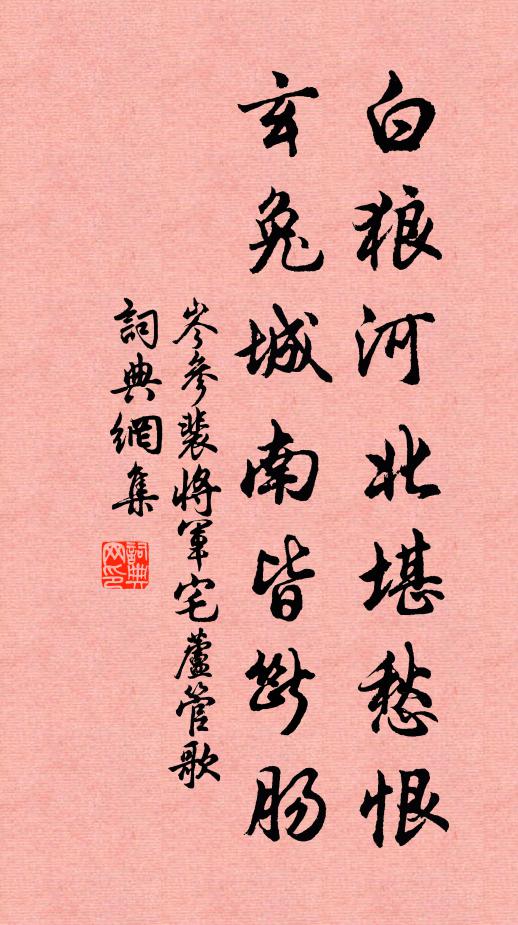 白狼河北堪愁恨
玄兔城南皆斷肠
岑參裴將軍宅蘆管歌
詞典網集
詞典網印